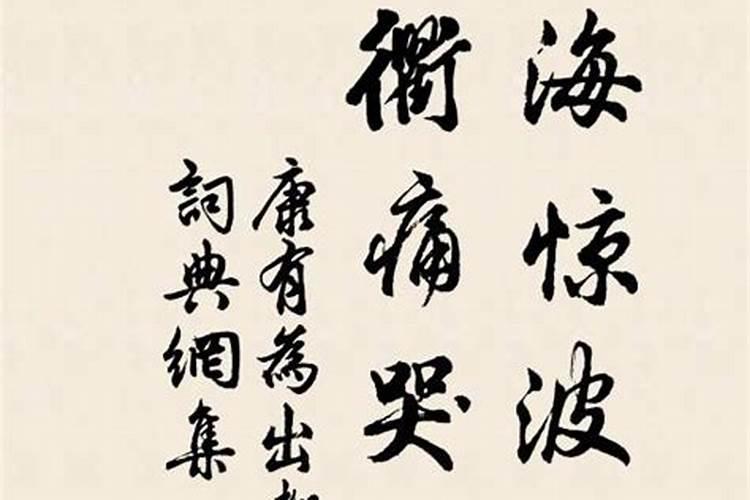 海惊波
衢痛哭
康有為出
詞典網集